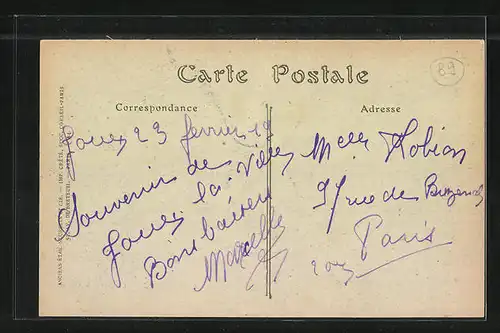 Carte Postale
Correspondance
Adresse
89
Jouy 23 février 19
Souvenir de
Jouy la ville
Bons baisers
Marcelle
Melle Robian
97 rue de Buzenval
Paris
20